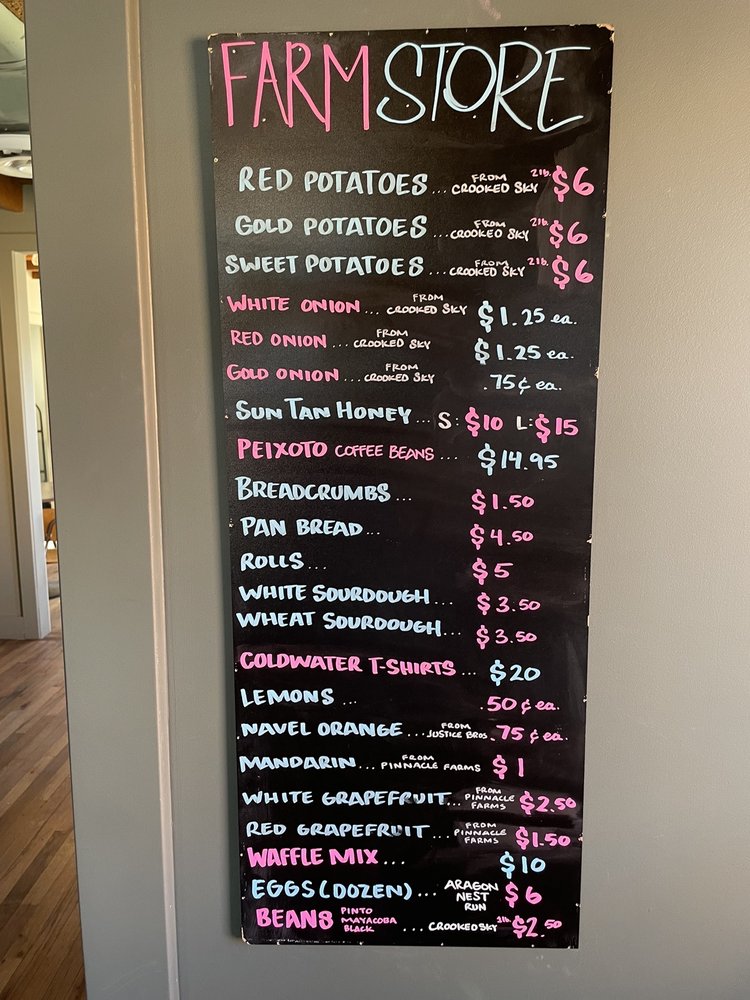 FARM STORE
RED POTATOES... FROM CROOKED SKY 2 lb. $6
GOLD POTATOES ... FROM CROOKED SKY 2 lb. $6
SWEET POTATOES ... FROM CROOKED SKY 2 lb. $6
WHITE ONION ... FROM CROOKED SKY $1.25 ea.
RED ONION ... FROM CROOKED SKY $1.25 ea.
GOLD ONION ... FROM CROOKED SKY .75¢ ea.
SUN TAN HONEY... S: $10 L: $15
PEIXOTO COFFEE BEANS ... $14.95
BREADCRUMBS ... $1.50
PAN BREAD... $4.50
ROLLS... $5
WHITE SOURDOUGH... $3.50
WHEAT SOURDOUGH... $3.50
COLDWATER T-SHIRTS ... $20
LEMONS ... .50¢ ea.
NAVEL ORANGE ... FROM JUSTICE BROS .75¢ ea.
MANDARIN ... FROM PINNACLE FARMS $1
WHITE GRAPEFRUIT... FROM PINNACLE FARMS $2.50
RED GRAPEFRUIT... FROM PINNACLE FARMS $1.50
WAFFLE MIX ... $10
EGGS (DOZEN) ... ARAGON NEST RUN $6
BEANS PINTO MAYACOBA BLACK ... CROOKED SKY 1 lb. $2.50